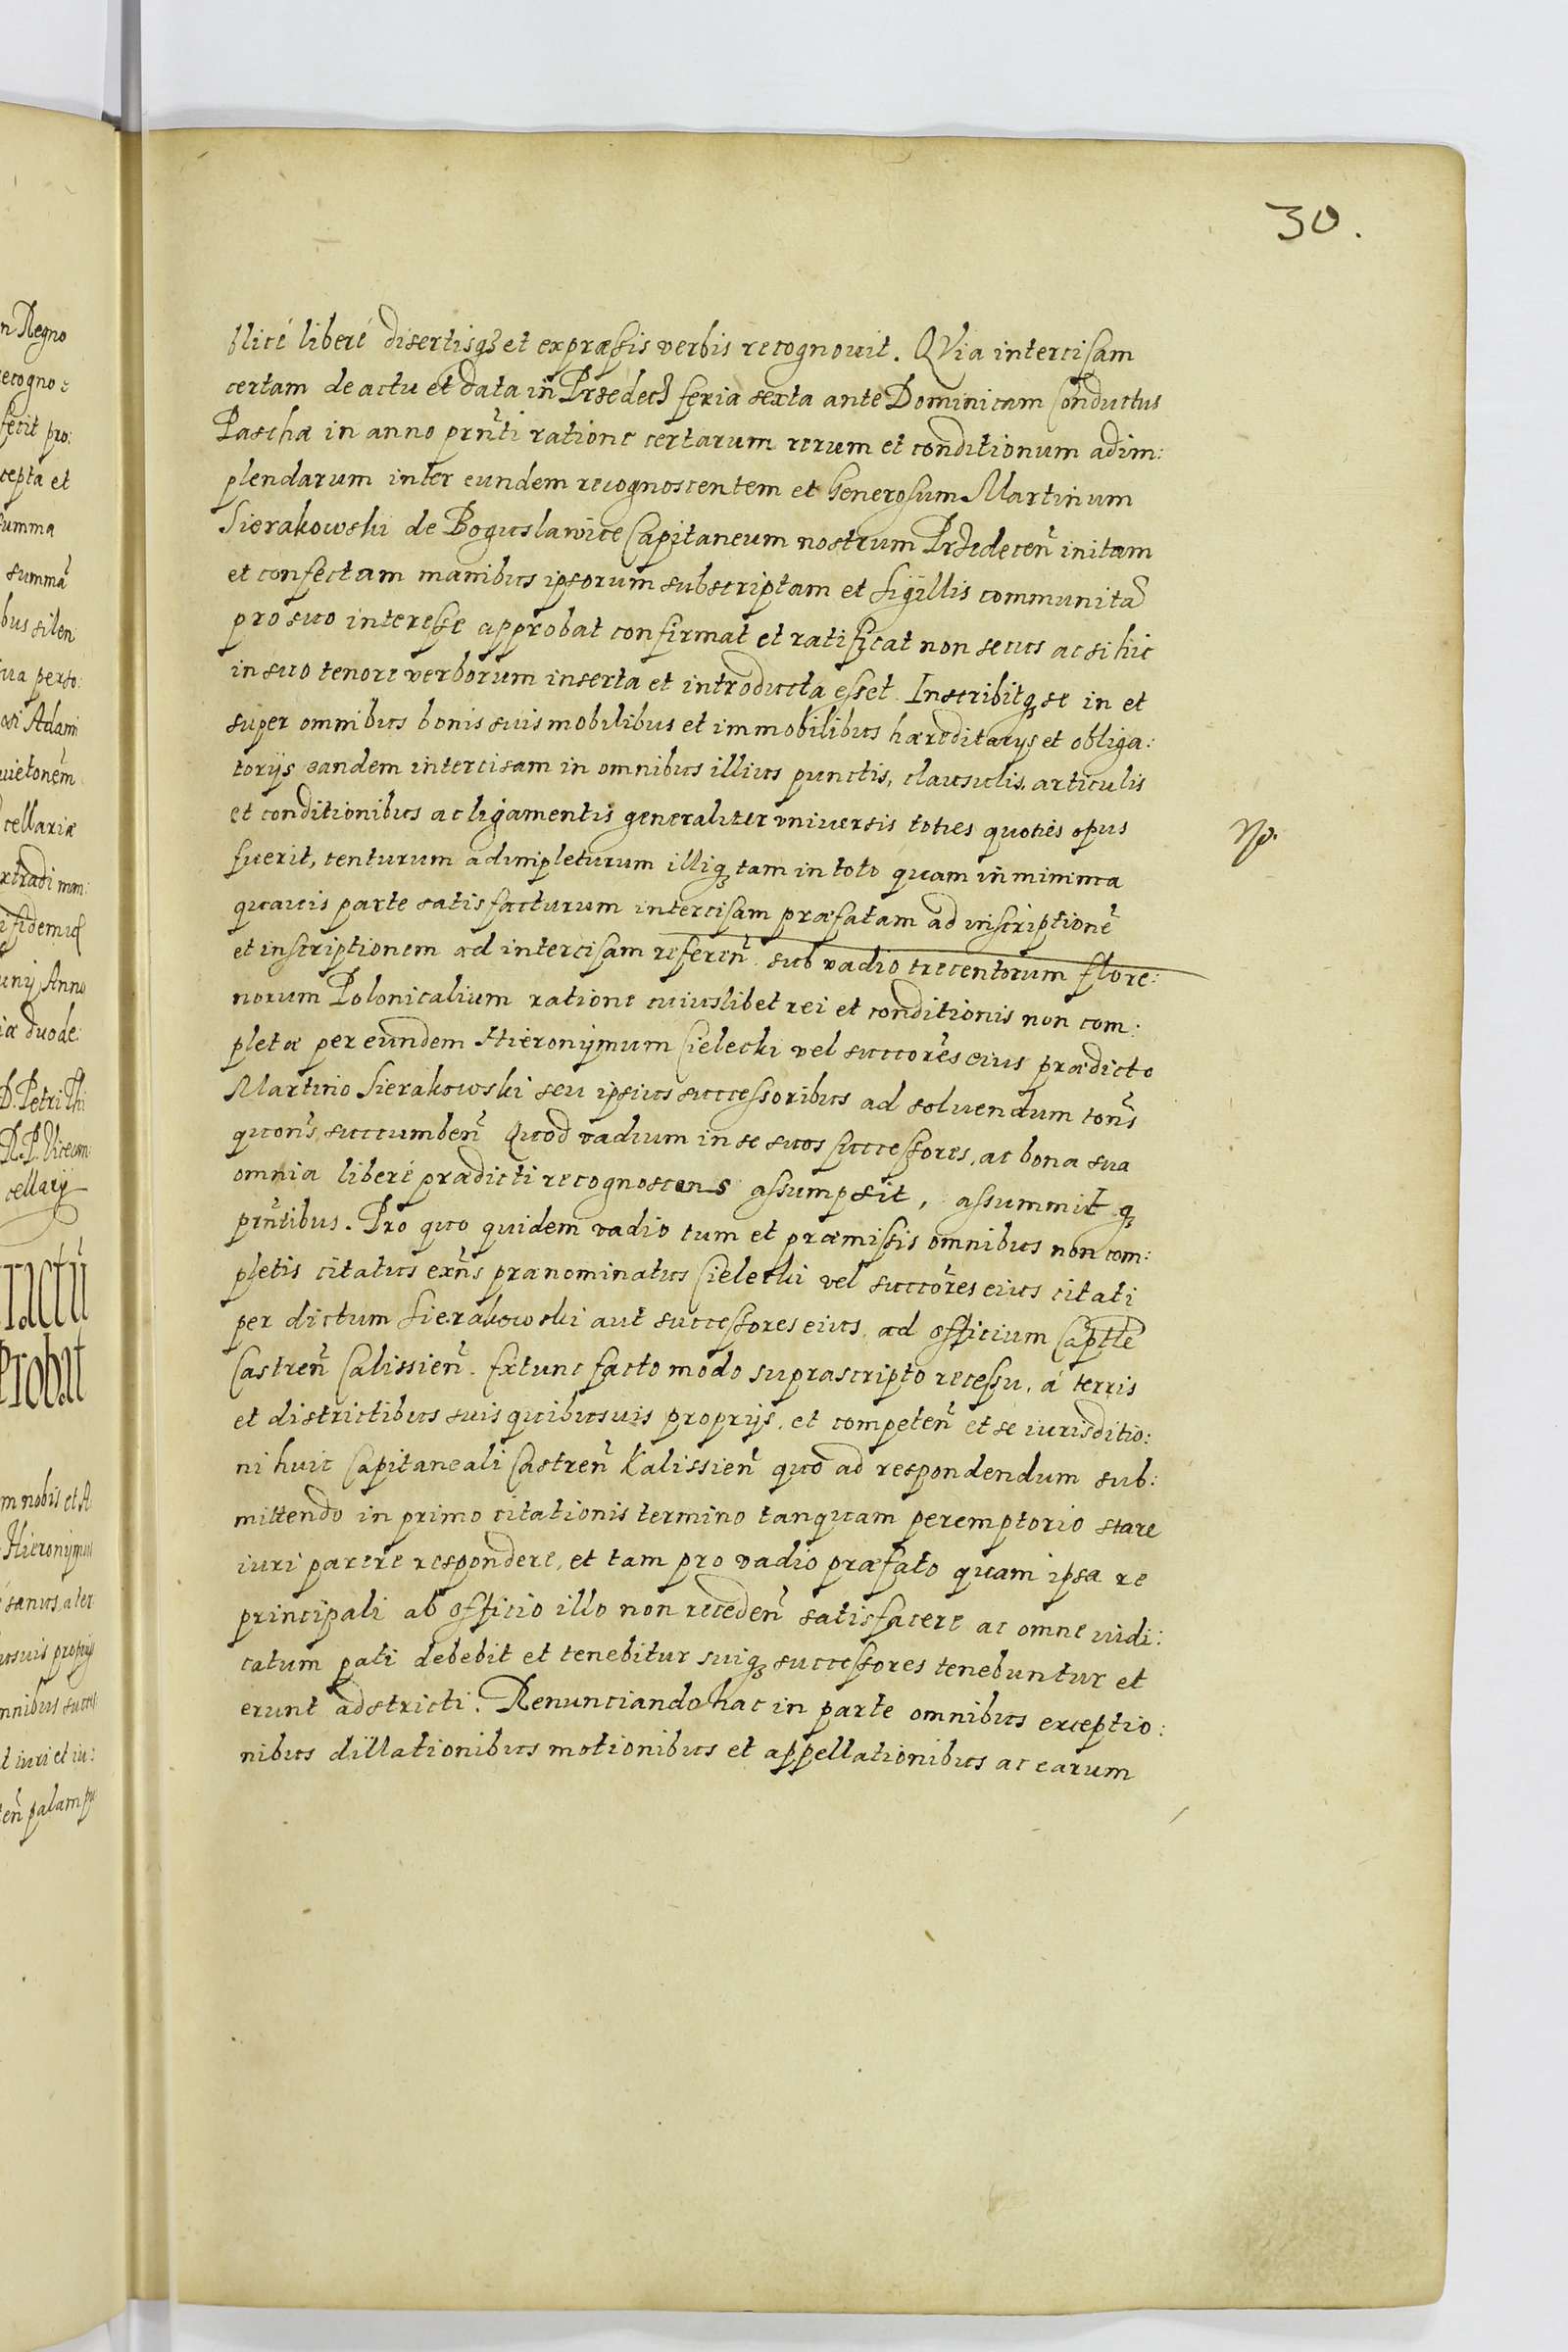 30.
blicé liberé disertisqꝫ et expræssis verbis recognouit. QVia intercisam
certam de actu et data in Przedecz feria sexta ante Dominicam Conductus
Paschæ in anno prn̄ti ratione certarum rerum et conditionum adim:
plendarum inter eundem recognoscentem et Generosum Martinum
Sierakowski de Boguslawice Capitaneum nostrum Przedecen̄ initam
et confectam manibus ipsorum subscriptam et sigillis communitā
pro suo interesse approbat confirmat et ratificat non secus ac si hic
in suo tenore verborum inserta et introducta esset. Inscribitqꝫ se in et
super omnibus bonis suis mobilibus et immobilibus hæreditarÿs et obliga:
torÿs eandem intercisam in omnibus illius punctis, clausulis, articulis
et conditionibus ac ligamentis generaliter vniuersis toties quoties opus
fuerit, tenturum adimpleturum illiqꝫ tam in toto quam in minima
quauis parte satisfacturum intercisam præfatam ad inscriptionē
et inscriptionem ad intercisam referen̄ sub vadio trecentorum flore:
norum Polonicalium ratione cuiuslibet rei et conditionis non com:
pletæ per eundem Hieronÿmum Cielecki vel succores̄ eius prædicto
Martino Sierakowski seu ipsius successoribus ad soluendum ton̄s
quon̄s succumben̄ Quod vadium in se suos successores, ac bona sua
omnia liberé prædicti recognoscens assumpsit, assummit qꝫ
prn̄tibus. Pro quo quidem vadio tum et præmissis omnibus non com:
pletis citatus exn̄s prænominatus Cielecki vel succores̄ eius citati
per dictum Sierakowski aut successores eius ad officium Captle̅
Castren̄ Calissien̄. Extunc facto modo suprascripto recessu, á terris
et districtibus suis quibusuis proprÿs, et competen̄ et se iurisditio:
ni huic Capitaneali Castren̄ Kalissien̄ quo ad respondendum sub:
mittendo in primo citationis termino tanquam peremptorio stare
iuri parere respondere, et tam pro vadio præfato quam ipsa re
principali ab officio illo non receden̄ satisfacere ac omne iudi:
catum pati debebit et tenebitur suiqꝫ successores tenebuntur et
erunt adstricti. Renunciando hac in parte omnibus exceptio:
nibus dillationibus motionibus et appellationibus ac earum